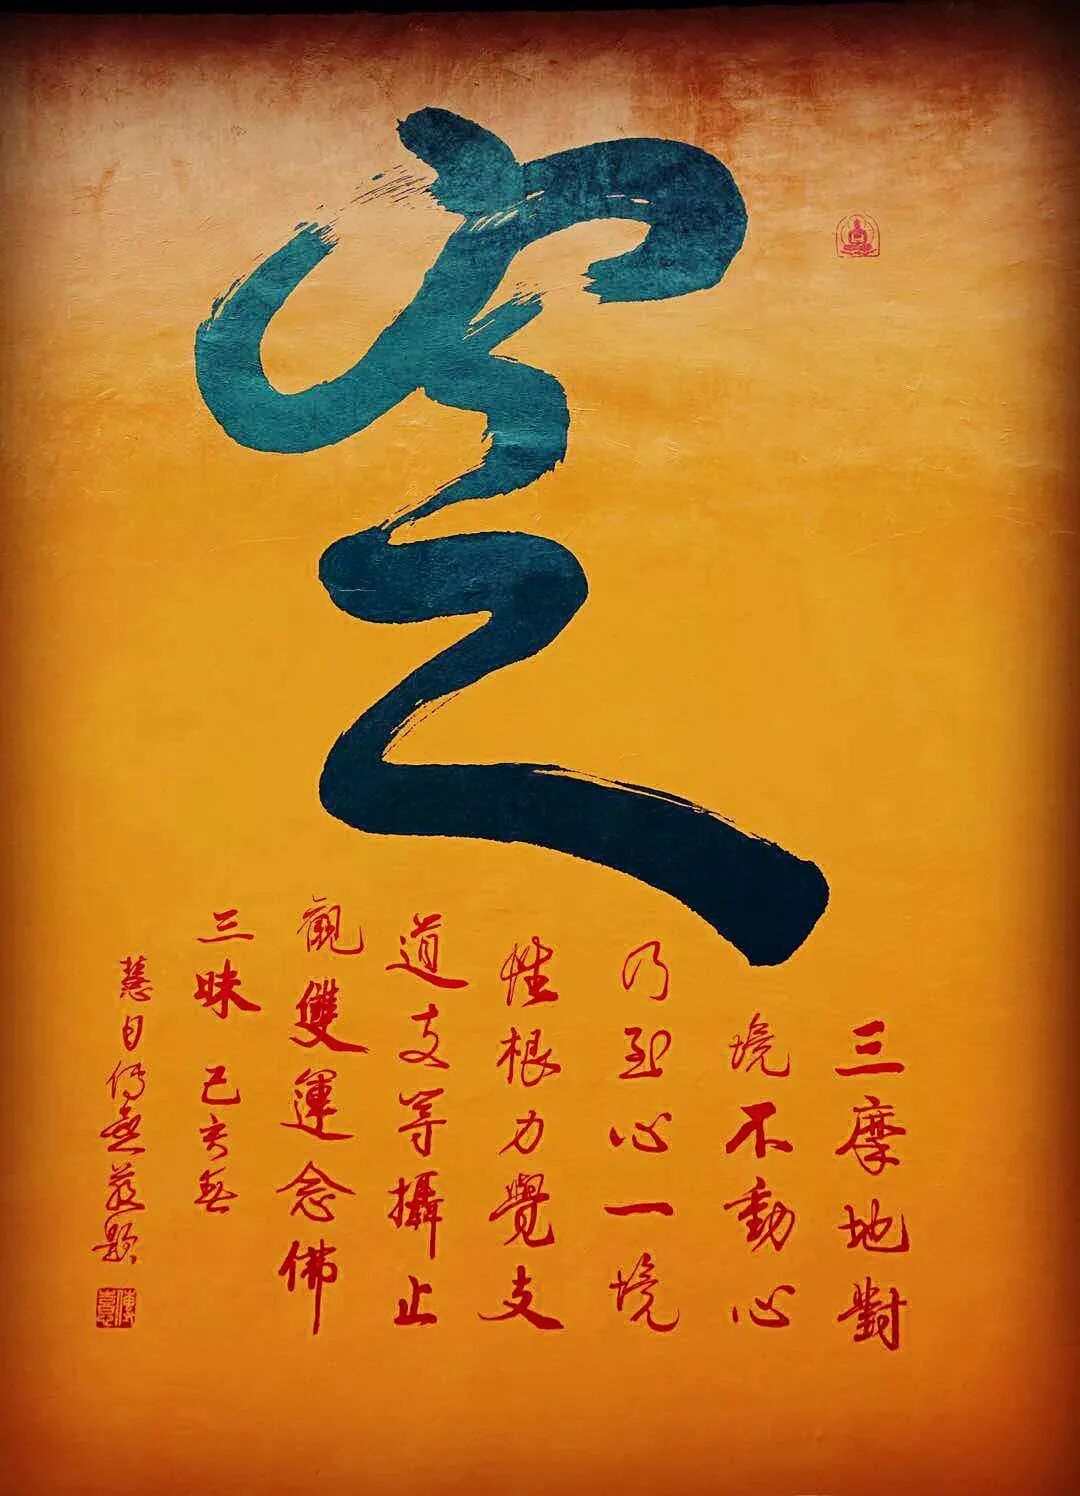 三摩地對
境不動心
乃至心一境
性根力覺支
道支等攝止
觀雙運念佛
三昧 己亥
慧日傳喜題